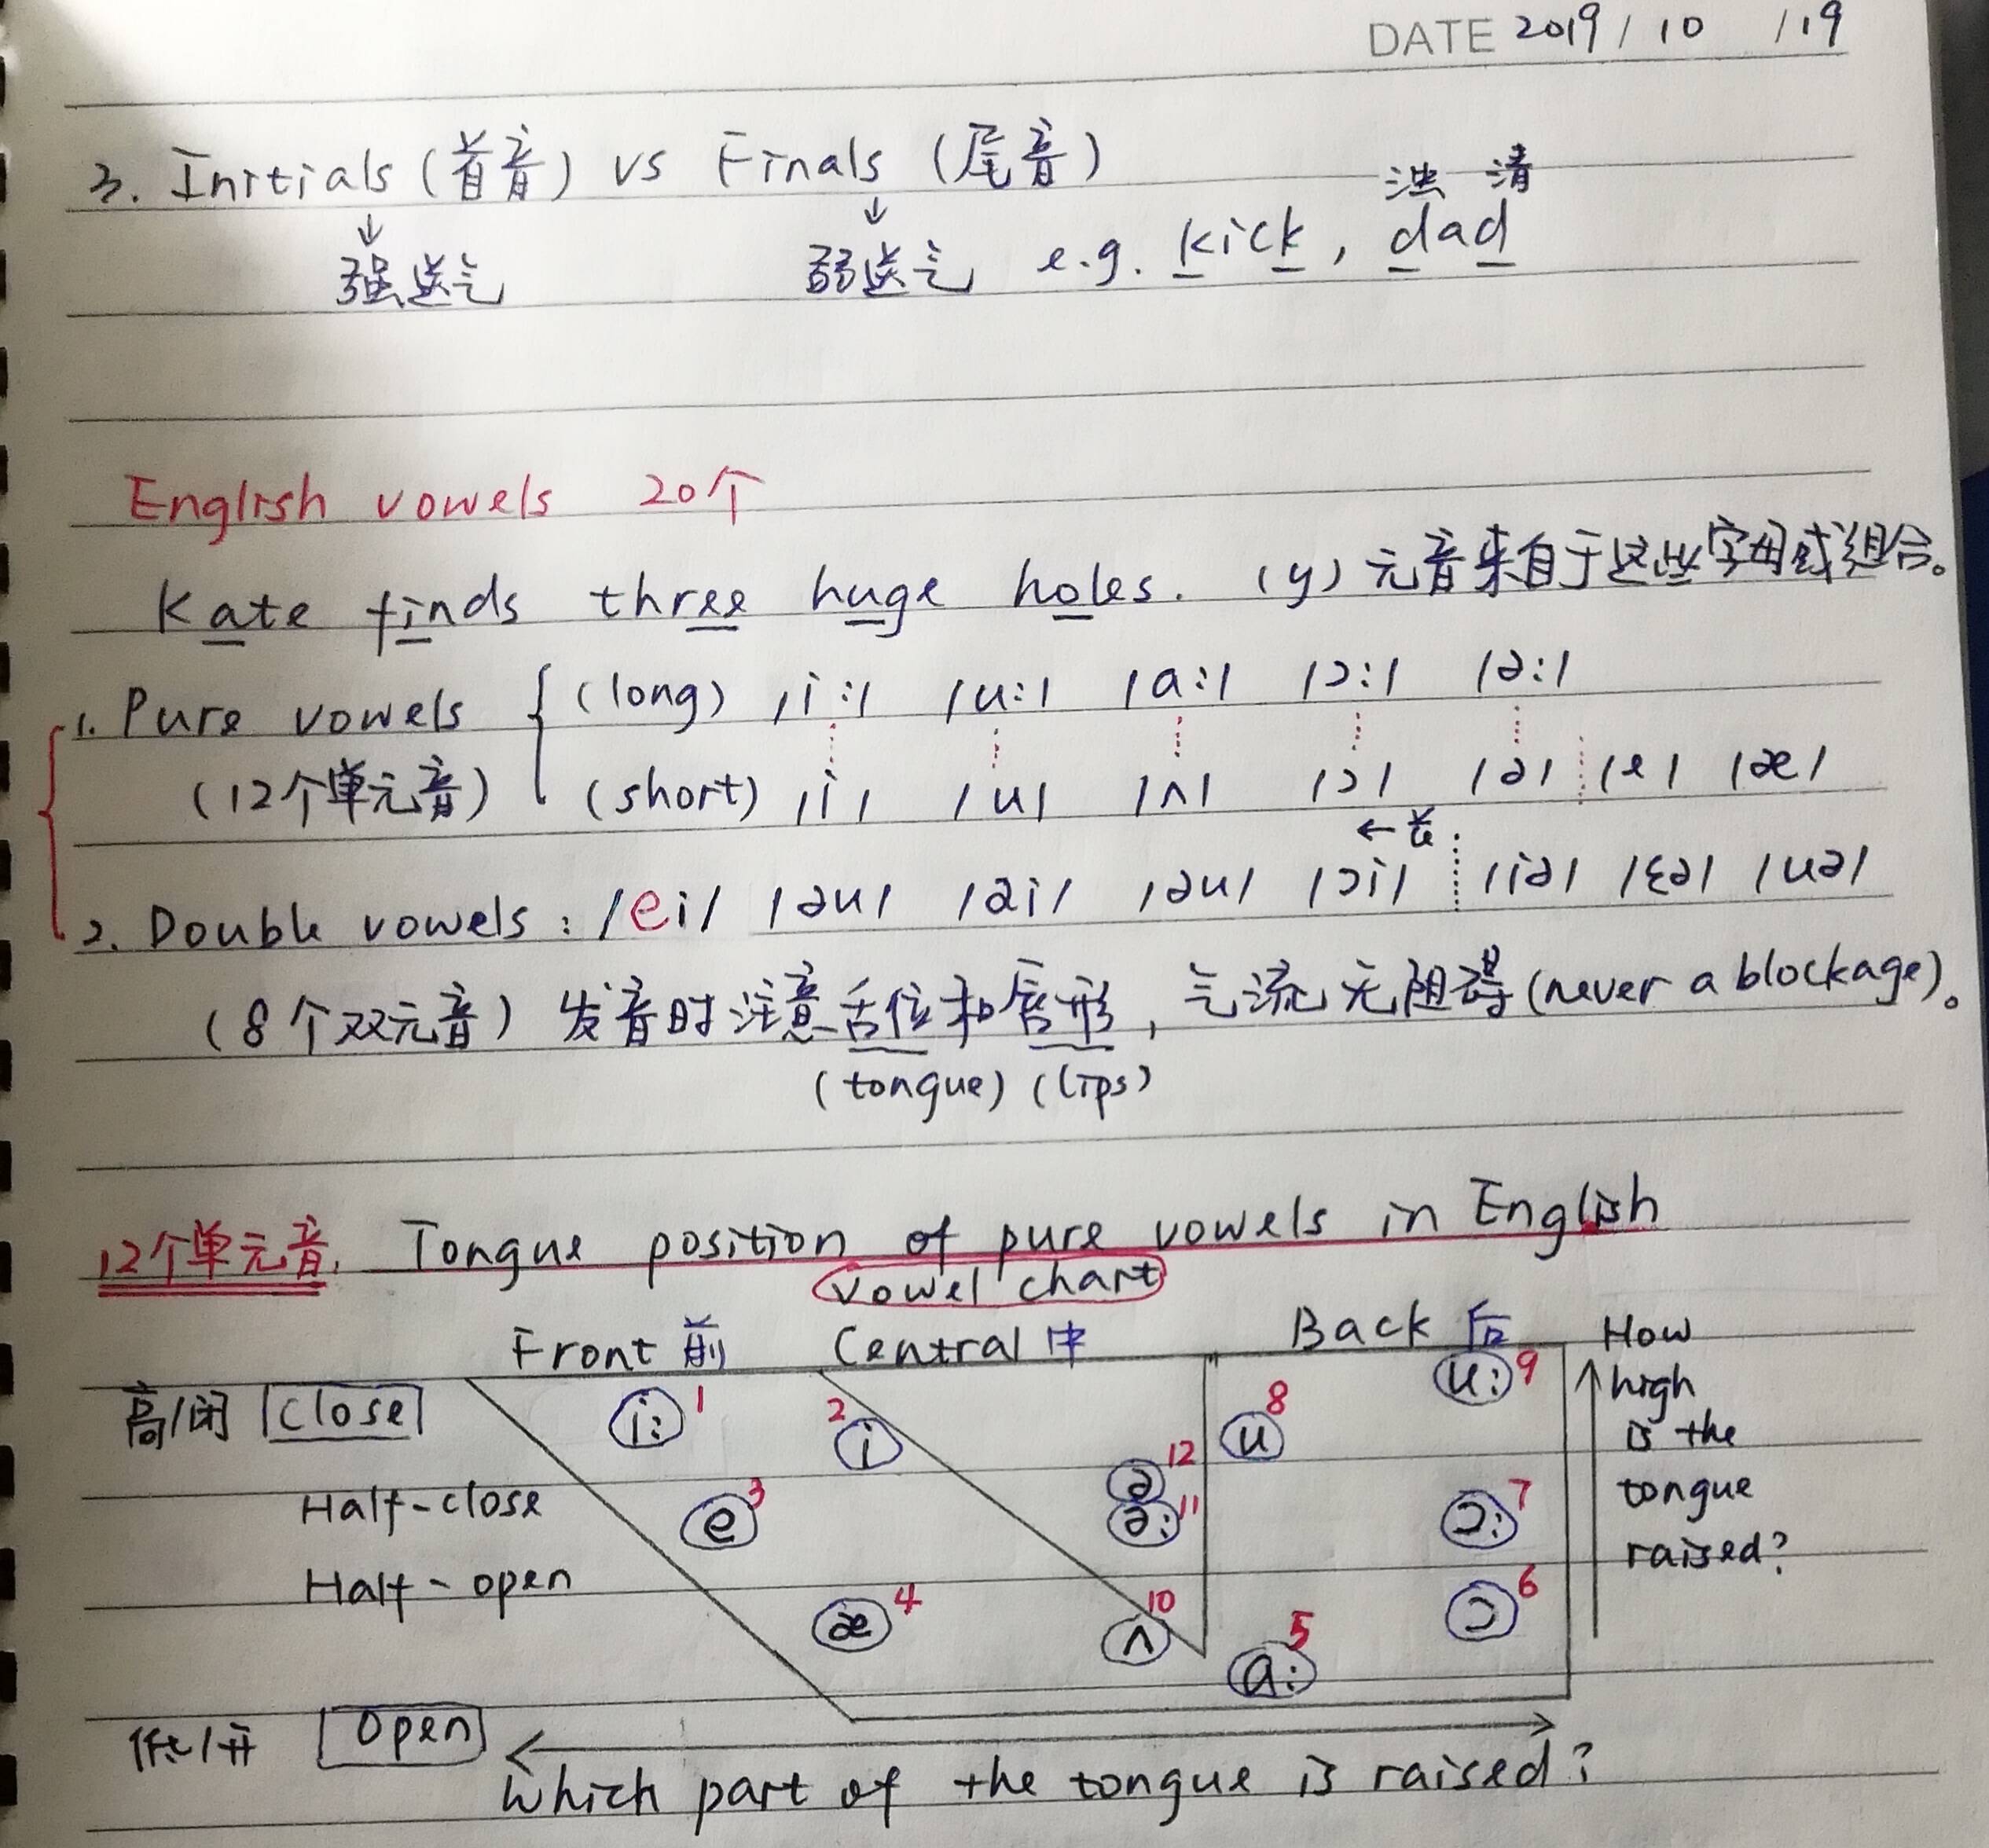 DATE 2019 / 10 / 19
3. Initials (首音) vs Finals (尾音)
浊 清
↓ ↓
强送气 弱送气 e.g. kick, dad
English vowels 20个
Kate finds three huge holes. (y) 元音来自于这些字母或组合。
1. Pure vowels { (long) /i:/ /u:/ /a:/ /ɔ:/ /ə:/
(12个单元音) (short) /i/ /u/ /ʌ/ /ɔ/ /ə/ /e/ /æ/
2. Double vowels : /ei/ /əu/ /ai/ /au/ /ɔi/ /iə/ /ɛə/ /uə/
(8个双元音) 发音时注意舌位和唇形, 气流无阻碍 (never a blockage)。
(tongue) (lips)
12个单元音. Tongue position of pure vowels in English
vowel chart
Front 前 Central 中 Back 后 How
高/闭 close i: 1 2 i u 8 u: 9 high
is the
Half-close e 3 ə 12 ə: 11 ɔ: 7 tongue
Half-open æ 4 ʌ 10 ɔ 6 raised?
a: 5
低/开 open
Which part of the tongue is raised?